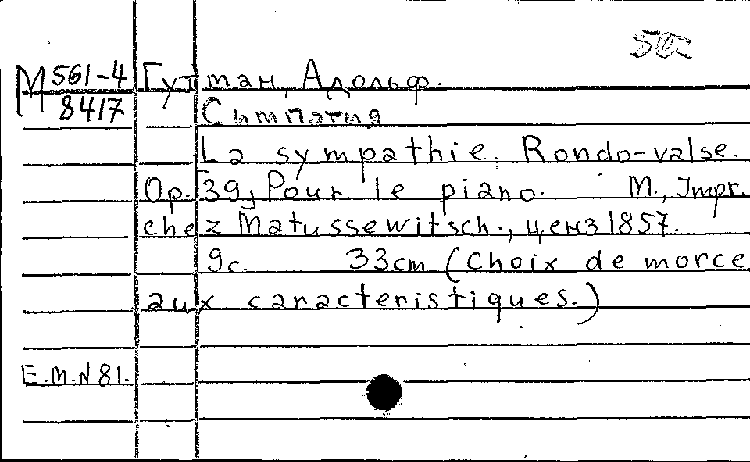 М 561-4 Гутман, Адольф.
8417 Симпатия
La sympathie. Rondo-valse.
Op. 39, Pour le piano. М., Impr.
chez Matussewitsch., ценз 1857.
9с 33cm (Choix de morce
aux caracteristiques.)
Е.М.N 81.